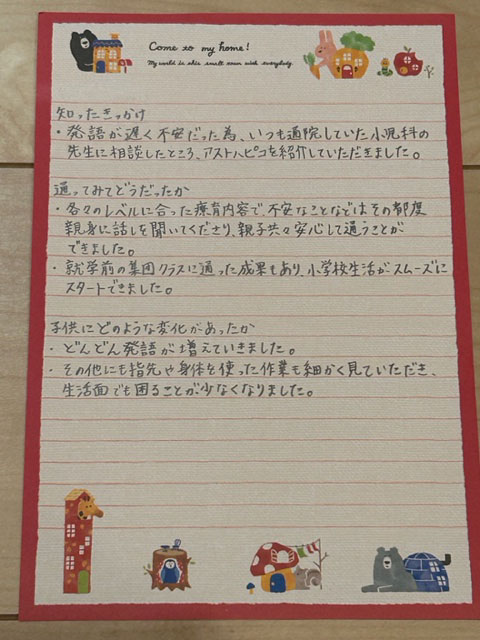 Come to my home!
My world is this small town with everybody.
知ったきっかけ
・発語が遅く不安だった為、いつも通院していた小児科の
先生に相談したところ、アストハピコを紹介していただきました。
通ってみてどうだったか
・各々のレベルに合った療育内容で、不安なことなどはその都度
親身に話しを聞いてくださり、親子共々安心して通うことが
できました。
・就学前の集団クラスに通った成果もあり、小学校生活がスムーズに
スタートできました。
子供にどのような変化があったか
・どんどん発語が増えていきました。
・その他にも指先や身体を使った作業も細かく見ていただき、
生活面でも困ることが少なくなりました。